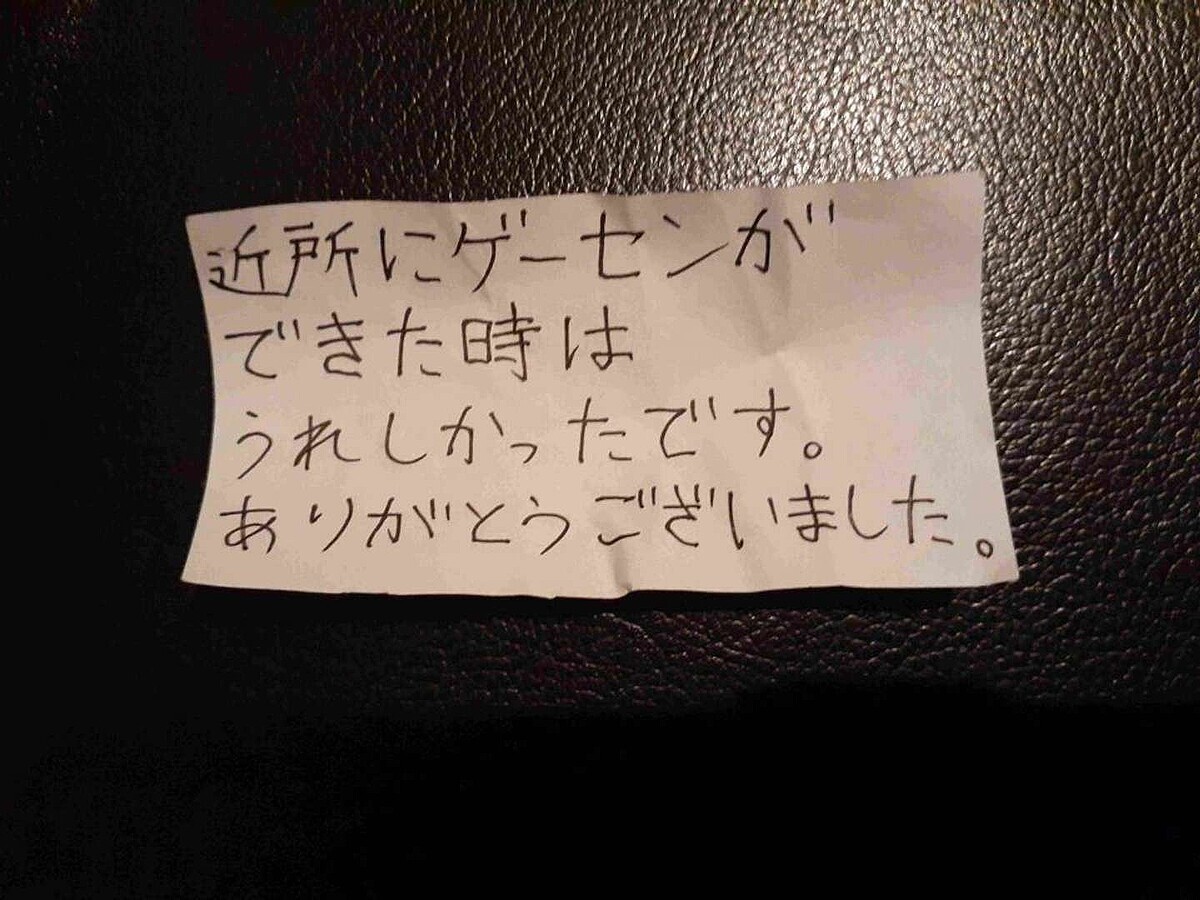 近所にゲーセンが
できた時は
うれしかったです。
ありがとうございました。